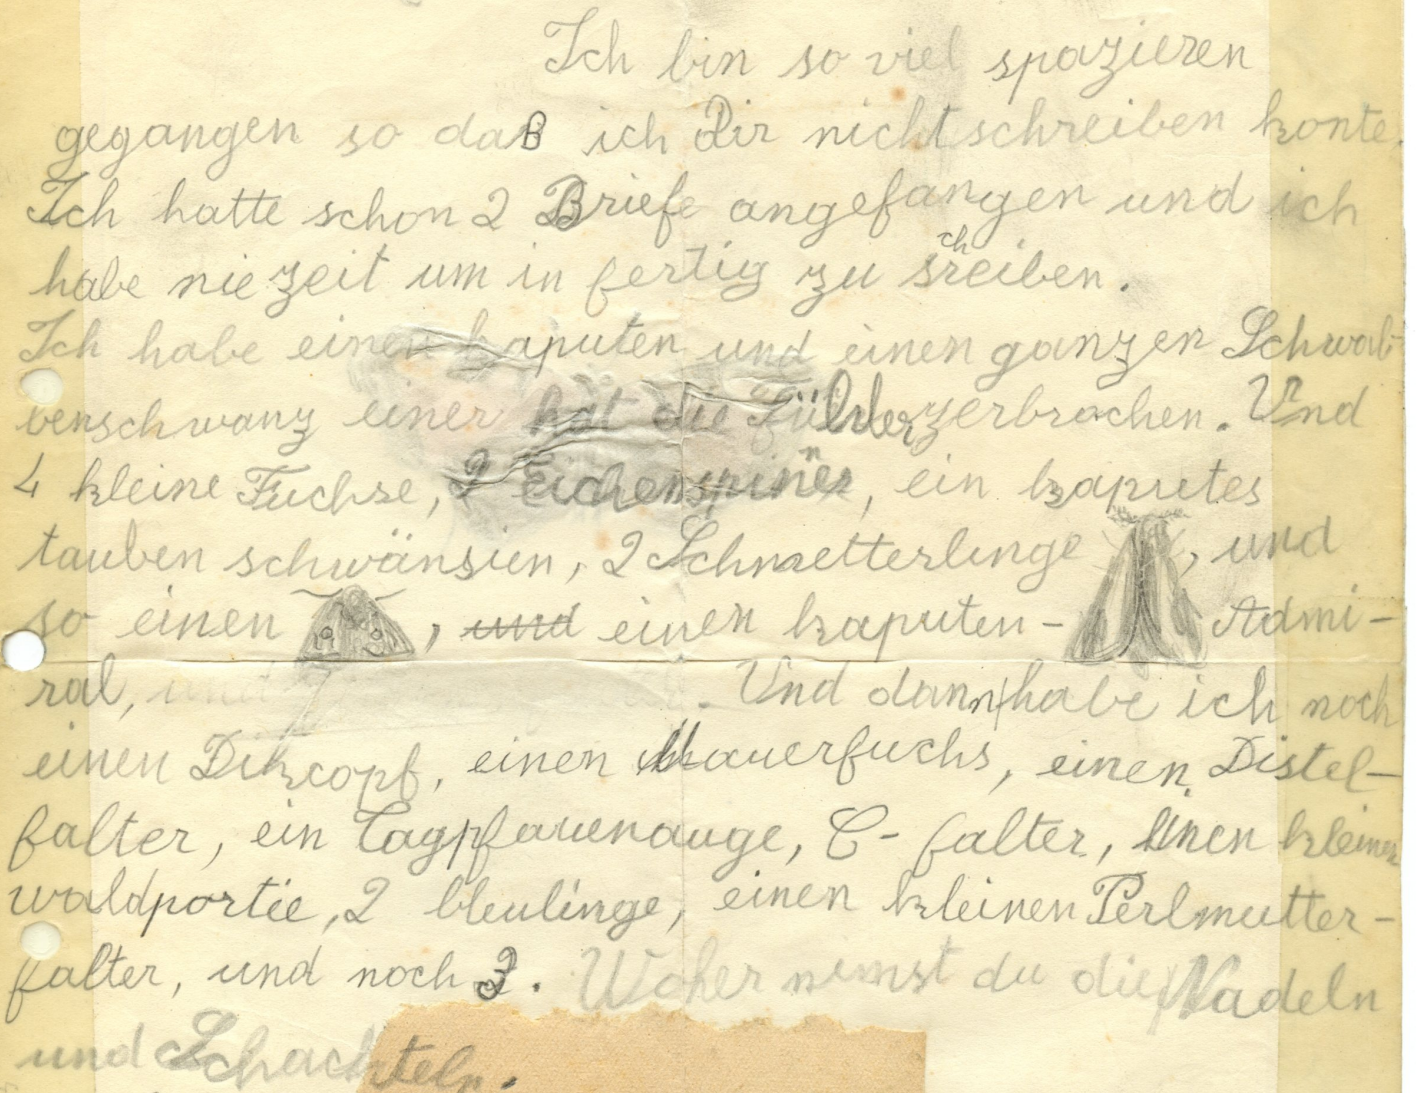 Ich bin so viel spazieren
gegangen so daß ich Dir nicht schreiben konte.
Ich hatte schon 2 Briefe angefangen und ich
habe nie zeit um in fertig zu schreiben.
Ich habe einen kaputen und einen ganzen Schwal-
benschwanz einer hat die Fühler zerbrochen. Und
4 kleine Fuchse, 2 Eichenspinner, ein kaputes
tauben schwänsien, 2 Schmetterlinge , und
so einen , und einen kaputen- Admi-
ral, und . Und dann habe ich noch
einen Dikcopf, einen Mauerfuchs, einen Distel-
falter, ein Tagpfauenauge, C- falter, einen kleinen
waldportie, 2 bleulinge, einen kleinen Perlmutter-
falter, und noch 3. Woher nimst du die Nadeln
und Schachteln.